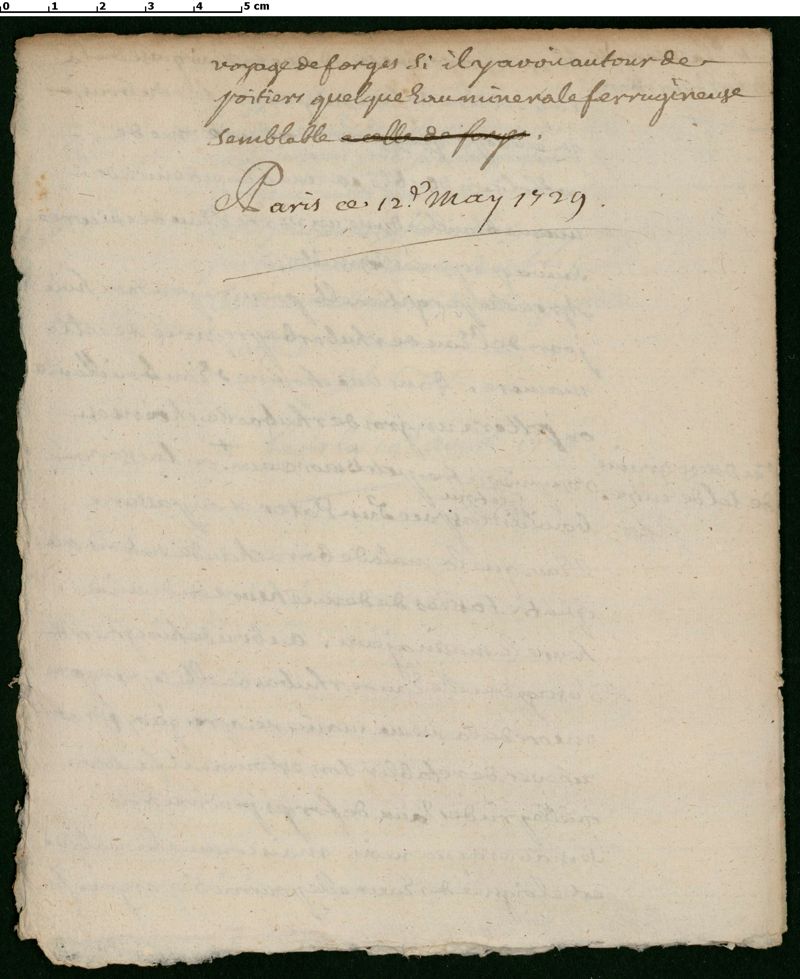 0 1 2 3 4 5 cm
voyage de forges si il y avoit autour de
poitiers quelque Eau minerale ferrugineuse
semblable a celle de forges.
Paris ce 12.e May 1729.